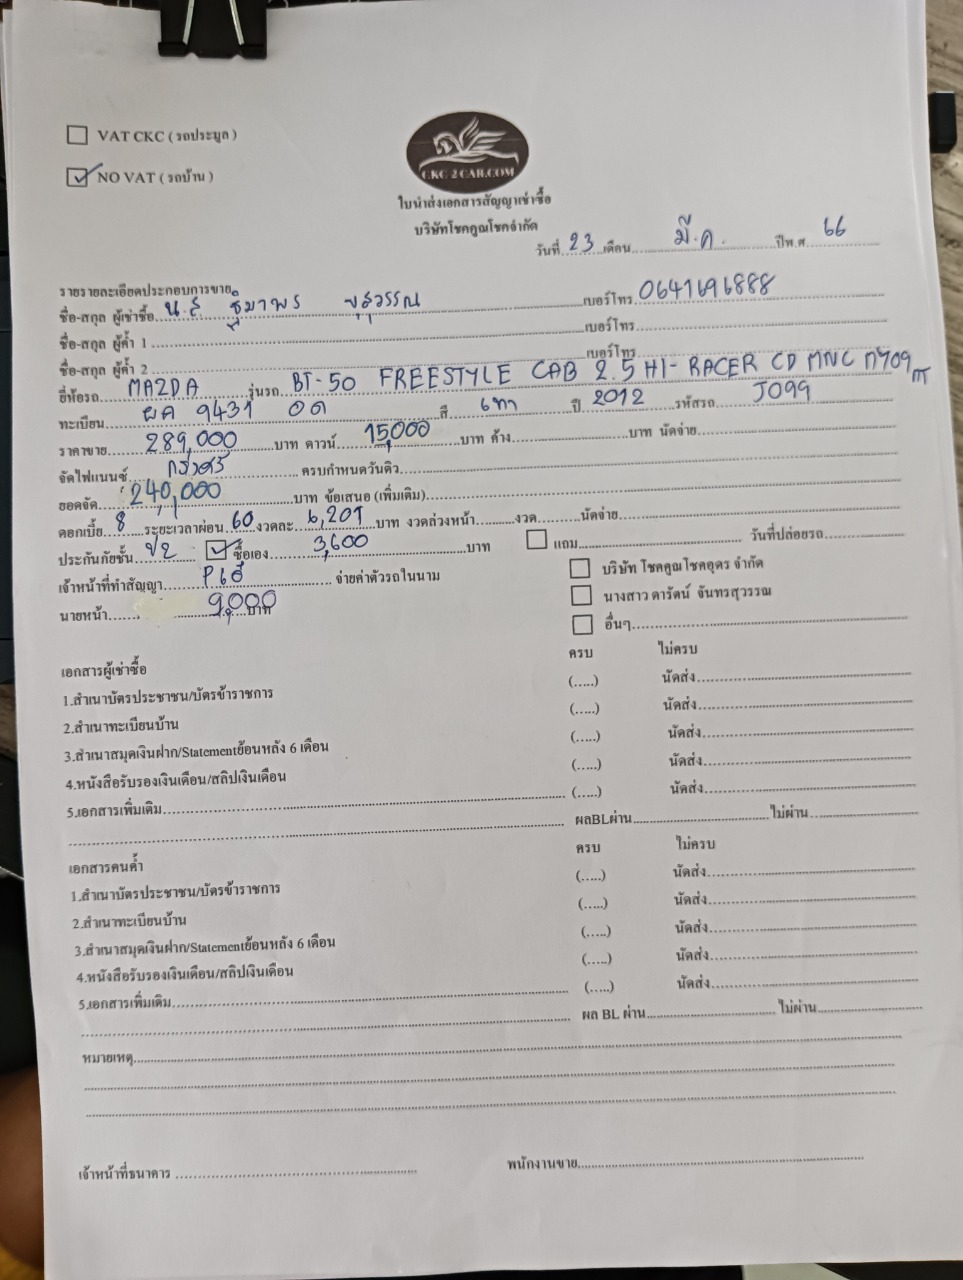 VAT CKC ( รถประมูล )
NO VAT ( รถบ้าน )
CKC 2 CAR.COM
ใบนำส่งเอกสารสัญญาเช่าซื้อ
บริษัทโชคคูณโชคจำกัด
วันที่ 23 เดือน มี.ค. ปีพ.ศ 66
รายรายละเอียดประกอบการขาย
ชื่อ-สกุล ผู้เช่าซื้อ น.ส ฐิมาพร เบอร์โทร 0641696888
ชื่อ-สกุล ผู้ค้ำ 1 เบอร์โทร
ชื่อ-สกุล ผู้ค้ำ 2 เบอร์โทร
ยี่ห้อรถ MAZDA รุ่นรถ BT-50 FREESTYLE CAB 2.5 HI-RACER CD MNC MY09 MT
ทะเบียน ผค 9431 อด สี เทา ปี 2012 รหัสรถ J099
ราคาขาย 289,000 บาท ดาวน์ 15,000 บาท ค้าง บาท นัดจ่าย
จัดไฟแนนซ์ กรุงศรี ครบกำหนดวันดิว
ยอดจัด 240,000 บาท ข้อเสนอ (เพิ่มเติม)
ดอกเบี้ย 8 ระยะเวลาผ่อน 60 งวดละ 6,201 บาท งวดล่วงหน้า งวด นัดจ่าย
ประกันภัยชั้น ป2 ซื้อเอง 3,600 บาท แถม วันที่ปล่อยรถ
เจ้าหน้าที่ทำสัญญา จ่ายค่าตัวรถในนาม บริษัท โชคคูณโชคอุดร จำกัด
นายหน้า 9,000 บาท นางสาว ดารัตน์ จันทรสุวรรณ
อื่นๆ
เอกสารผู้เช่าซื้อ ครบ ไม่ครบ
1.สำเนาบัตรประชาชน/บัตรข้าราชการ (.....) นัดส่ง
2.สำเนาทะเบียนบ้าน (.....) นัดส่ง
3.สำเนาสมุดเงินฝาก/Statementย้อนหลัง 6 เดือน (.....) นัดส่ง
4.หนังสือรับรองเงินเดือน/สลิปเงินเดือน (.....) นัดส่ง
5.เอกสารเพิ่มเติม (.....) นัดส่ง
ผลBLผ่าน ไม่ผ่าน
เอกสารคนค้ำ ครบ ไม่ครบ
1.สำเนาบัตรประชาชน/บัตรข้าราชการ (.....) นัดส่ง
2.สำเนาทะเบียนบ้าน (.....) นัดส่ง
3.สำเนาสมุดเงินฝาก/Statementย้อนหลัง 6 เดือน (.....) นัดส่ง
4.หนังสือรับรองเงินเดือน/สลิปเงินเดือน (.....) นัดส่ง
5.เอกสารเพิ่มเติม (.....) นัดส่ง
ผล BL ผ่าน ไม่ผ่าน
หมายเหตุ
เจ้าหน้าที่ธนาคาร พนักงานขาย